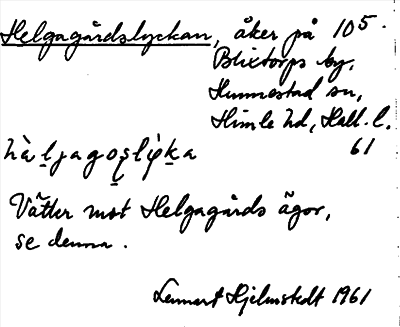 Helgagårdslyckan, åker på 10⁵.
Blixtorps by,
Hunnestad sn,
Himle hd, Hall. l.
61
Vätter mot Helgagårds ägor,
se denna.
Lennart Hjelmstedt 1961